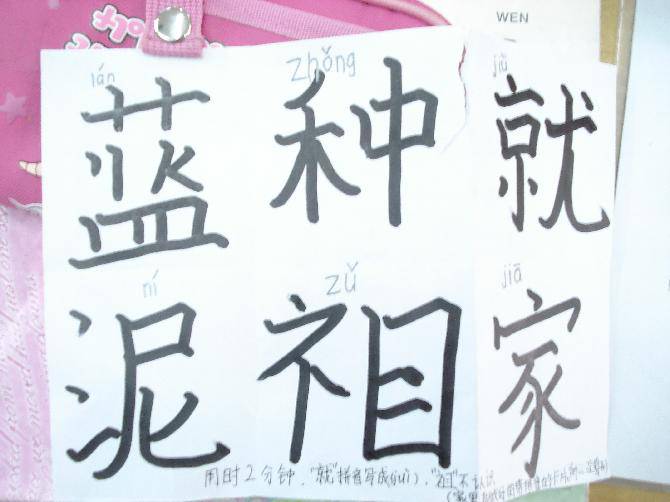 WEN
ián zhǒng jiù
蓝 种 就
ní zǔ jiā
泥 祖 家
用时2分钟，"就"拼音写成 "祖"不认识